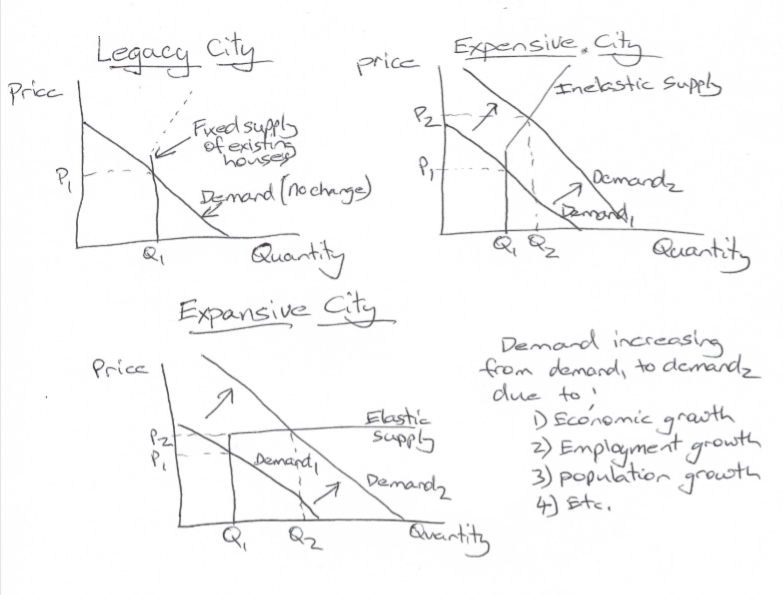 Legacy City
Price
Fixed supply
of existing
houses
P1
Demand (no change)
Q1
Quantity
Expensive City
price
Inelastic supply
P2
P1
Demand2
Demand1
Q1
Q2
Quantity
Expansive City
Price
Elastic
supply
P2
P1
Demand1
Demand2
Q1
Q2
Quantity
Demand increasing
from demand1 to demand2
due to:
1) Economic growth
2) Employment growth
3) population growth
4) Etc.